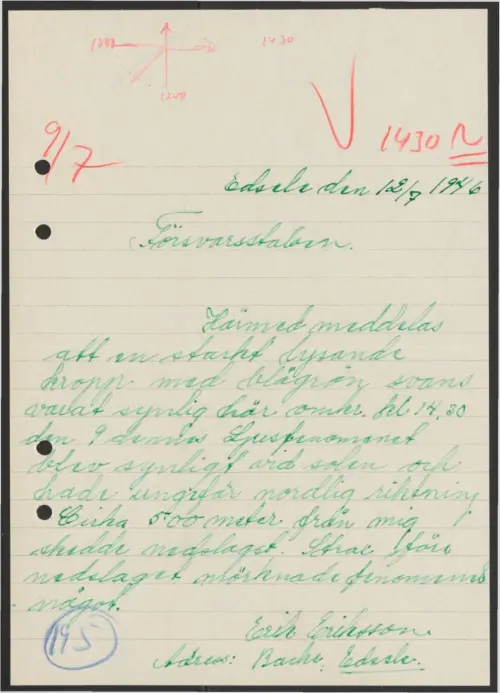 1430
1200
V 1430 N
9/7
Edsele den 12/7 1946
Försvarsstaben.
Härmed meddelas
att en starkt lysande
kropp med blågrön svans
varat synlig här omkr. kl 14.30
den 9 dennes Ljusfenomenet
blev synligt vid solen och
hade ungefär nordlig riktning
Cirka 500 meter från mig
skedde nedslaget. Strac före
nedslaget mörknade fenomenet
något.
Erik Eriksson
Adress: Backe, Edsele.
195